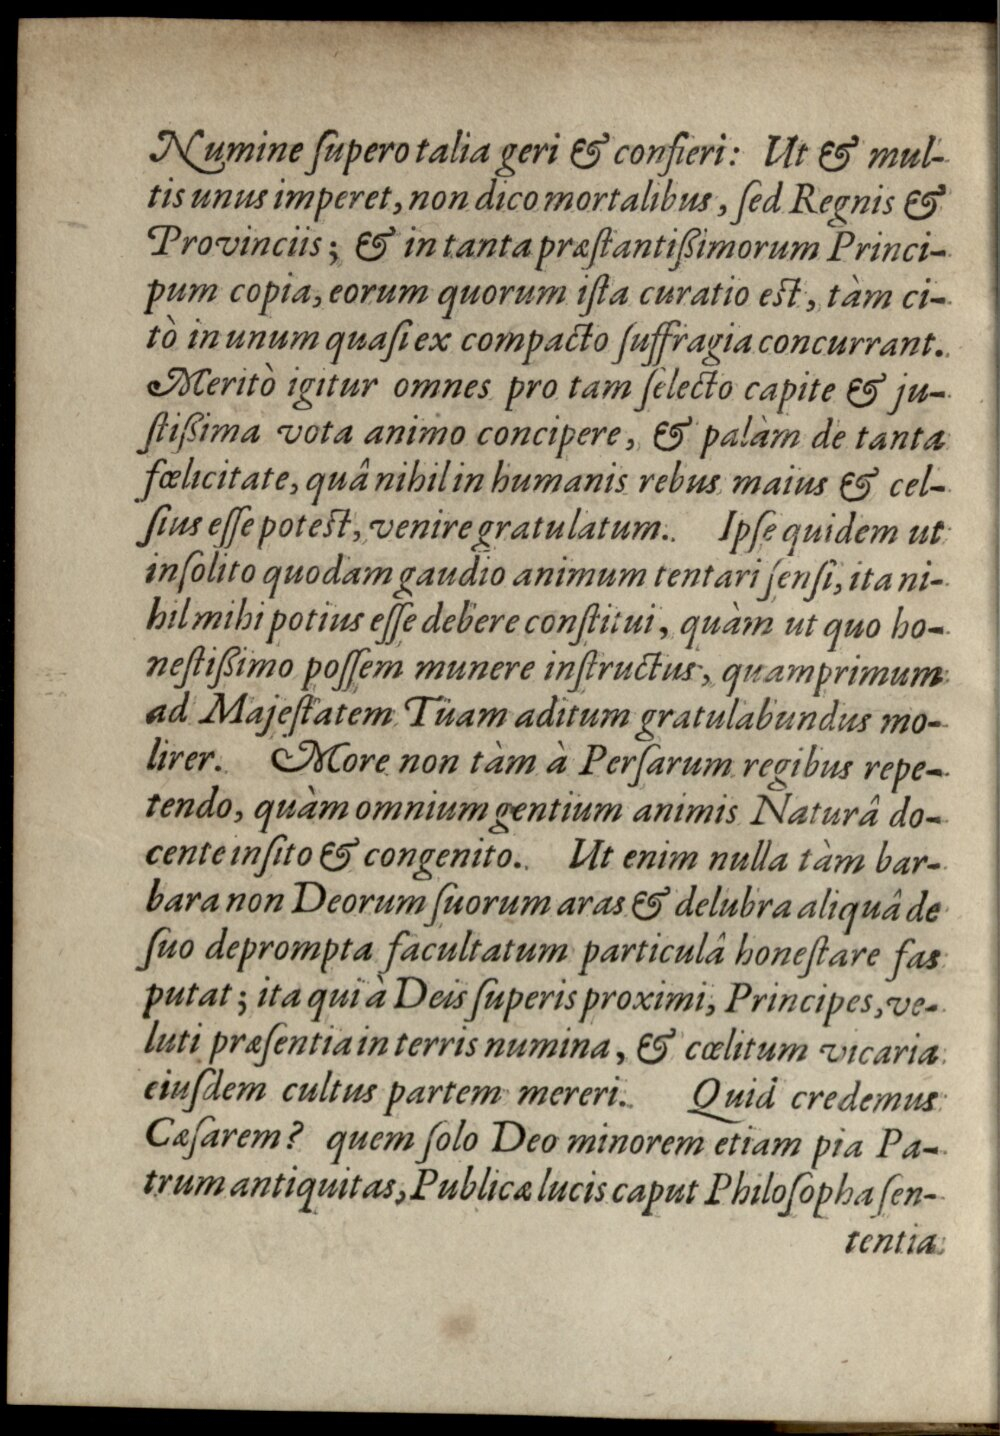 Numine ſupero talia geri & confieri: Ut & mul-
tis unus imperet, non dico mortalibus, ſed Regnis &
Provinciis; & in tanta præſtantißimorum Princi-
pum copia, eorum quorum iſta curatio eſt, tàm ci-
tò in unum quaſi ex compacto ſuffragia concurrant.
Meritò igitur omnes pro tam ſelecto capite & ju-
ſtißima vota animo concipere, & palàm de tanta
fœlicitate, quâ nihil in humanis rebus maius & cel-
ſius eſſe poteſt, venire gratulatum. Ipſe quidem ut
inſolito quodam gaudio animum tentari ſenſi, ita ni-
hil mihi potius eſſe debere conſtitui, quàm ut quo ho-
neſtißimo poſſem munere inſtructus, quamprimum
ad Majeſtatem Tuam aditum gratulabundus mo-
lirer. More non tàm à Perſarum regibus repe-
tendo, quàm omnium gentium animis Naturâ do-
cente inſito & congenito. Ut enim nulla tàm bar-
bara non Deorum ſuorum aras & delubra aliquâ de
ſuo deprompta facultatum particulâ honeſtare fas
putat; ita qui à Deis ſuperis proximi, Principes, ve-
luti præſentia in terris numina, & cœlitum vicaria
eiuſdem cultus partem mereri. Quid credemus
Cæſarem? quem ſolo Deo minorem etiam pia Pa-
trum antiquitas, Publicæ lucis caput Philoſopha ſen-
tentia